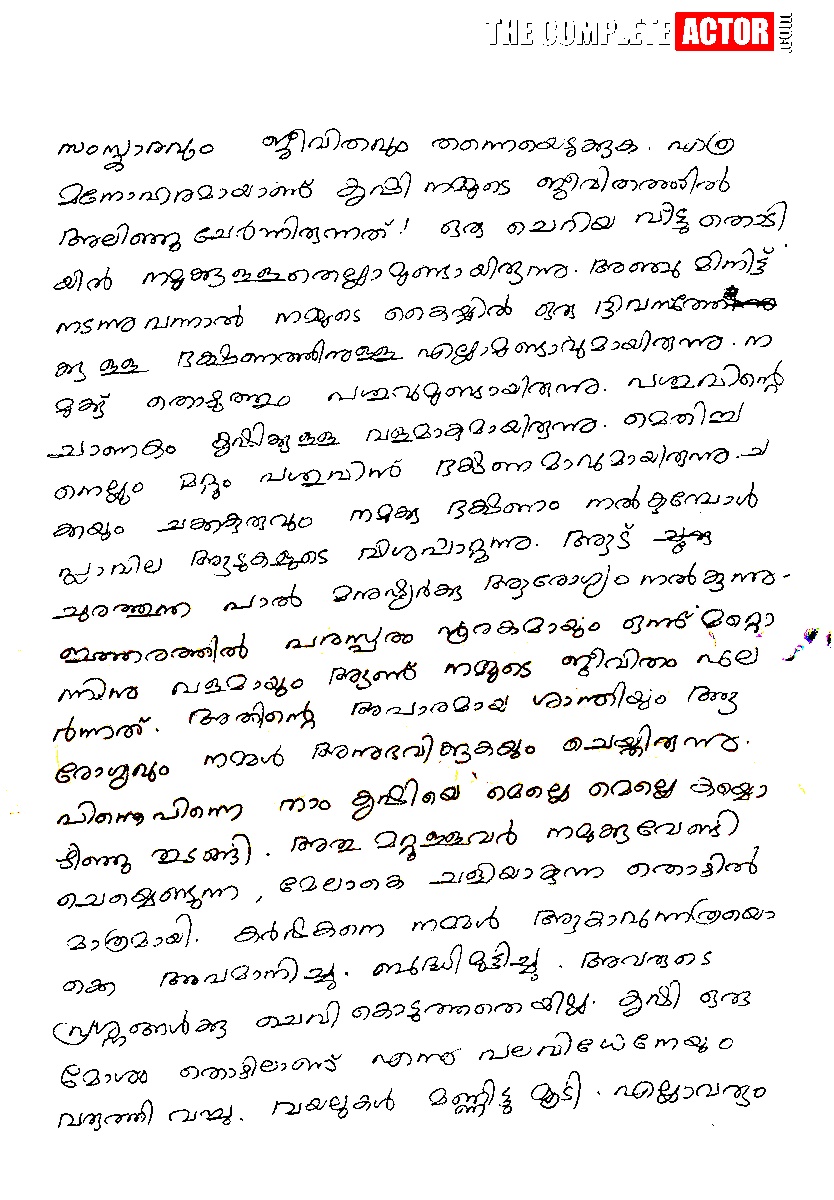 THE COMPLETE ACTOR
സംസ്കാരവും ജീവിതവും തന്നെയെടുക്കുക. എത്ര
മനോഹരമായാണ് കൃഷി നമ്മുടെ ജീവിതത്തിൽ
അലിഞ്ഞു ചേർന്നിരുന്നത്! ഒരു ചെറിയ വീട്ടു തൊടി
യിൽ നമുക്കുള്ളതെല്ലാമുണ്ടായിരുന്നു. അഞ്ചു മിനിട്ട്
നടന്നു വന്നാൽ നമ്മുടെ കൈയ്യിൽ ഒരു ദിവസത്തേ
ക്കുള്ള ഭക്ഷണത്തിനുള്ള എല്ലാമുണ്ടാവുമായിരുന്നു. ന
മുക്ക് തൊഴുത്തും പശുവുമുണ്ടായിരുന്നു. പശുവിന്റെ
ചാണകം കൃഷിക്കുള്ള വളമാകുമായിരുന്നു. മെതിച്ച
നെല്ലും മറ്റും പശുവിന് ഭക്ഷണമാവുമായിരുന്നു. ച
ക്കയും ചക്കക്കുരുവും നമുക്കു ഭക്ഷണം നൽകുമ്പോൾ
പ്ലാവില ആടുകളുടെ വിശപ്പാറ്റുന്നു. ആട്
ചുരത്തുന്ന പാൽ മനുഷ്യർക്കു ആരോഗ്യം നൽകുന്നു.
ഇത്തരത്തിൽ പരസ്പരം പൂരകമായും ഒന്ന് മറ്റൊ
ന്നിനു വളമായും ആണ് നമ്മുടെ ജീവിതം പുല
ർന്നത്. അതിന്റെ അപാരമായ ശാന്തിയും ആ
രോഗ്യവും നമ്മൾ അനുഭവിക്കുകയും ചെയ്തിരുന്നു.
പിന്നെപിന്നെ നാം കൃഷിയെ മെല്ലെ മെല്ലെ കയ്യൊ
ഴിഞ്ഞു തുടങ്ങി. അതു മറ്റുള്ളവർ നമുക്കുവേണ്ടി
ചെയ്യെണ്ടുന്ന, മേലാകെ ചളിയാകുന്ന തൊഴിൽ
മാത്രമായി. കർഷകനെ നമ്മൾ ആകാവുന്നത്രയൊ
ക്കെ അപമാനിച്ചു. ബുദ്ധിമുട്ടിച്ചു. അവരുടെ
പ്രശ്നങ്ങൾക്കു ചെവി കൊടുത്തതെയില്ല. കൃഷി ഒരു
മോശം തൊഴിലാണ് എന്നു പലവിധേനേയും
വരുത്തി വച്ചു. വയലുകൾ മണ്ണിട്ടു മൂടി. എല്ലാവരും